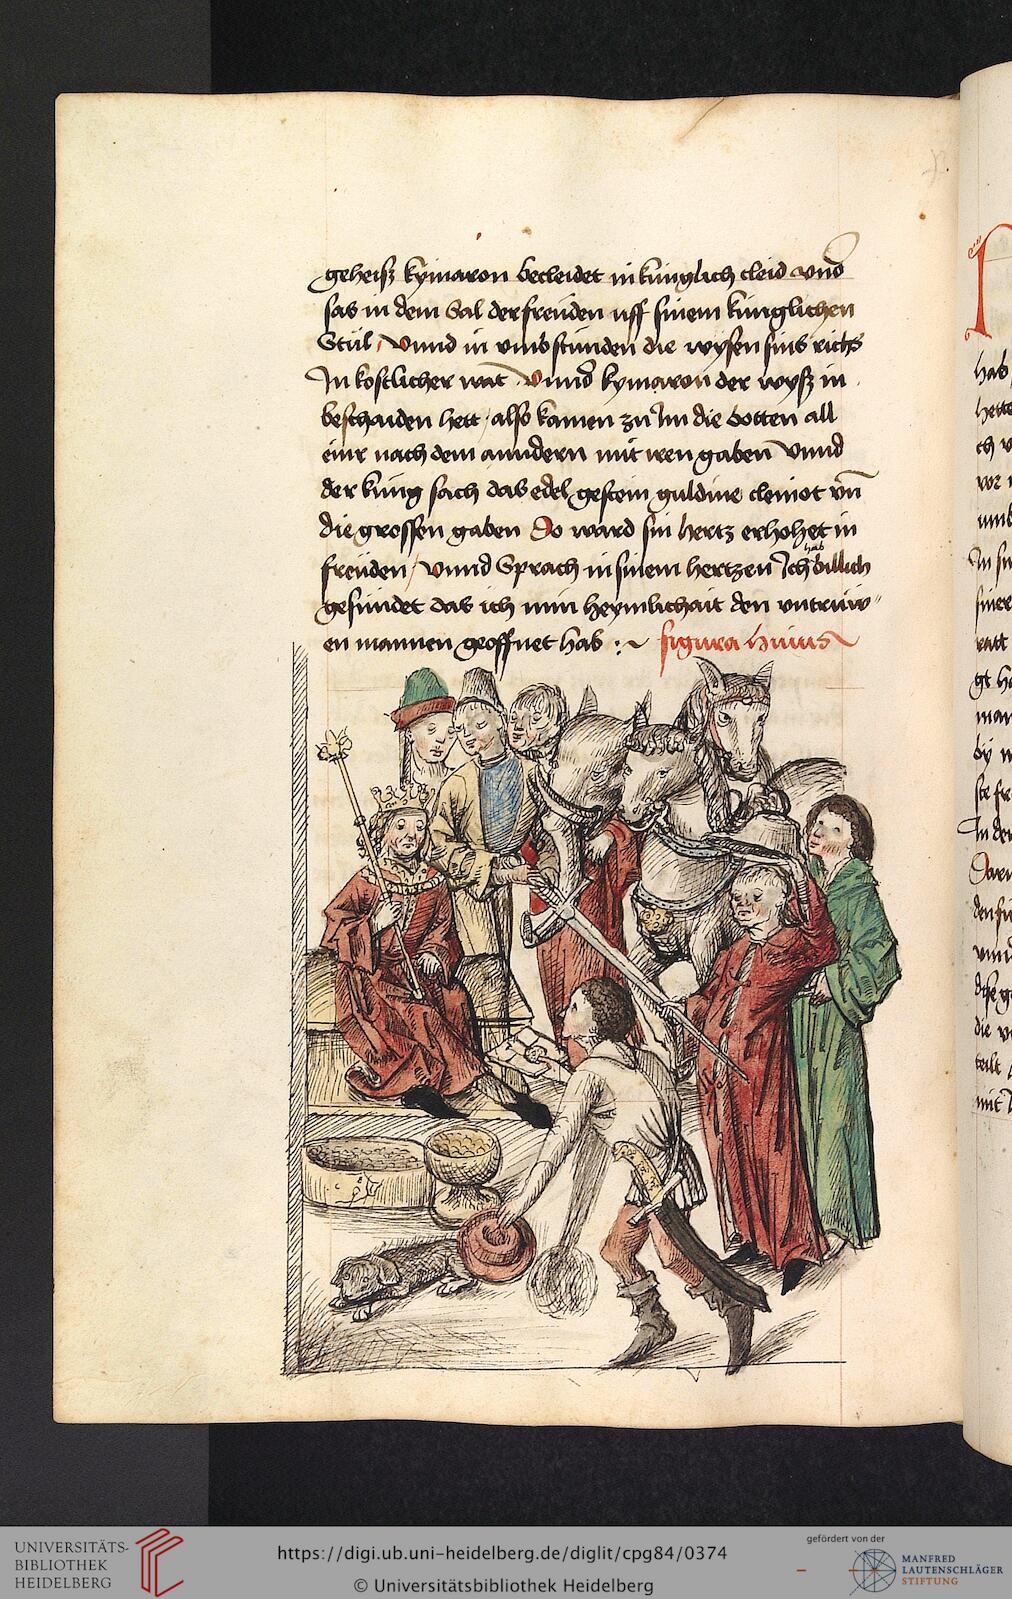 geheiß kymaron becleidet in künglich cleid vnd
sas in dem Sal der freüden uff sinem künglichen
Stül / Vnnd in vmbstünden die wysen sins richs
In kostlicher wat / Vnnd kymaron der wyß in
beschaiden hett / also kamen zu Im die botten all
einr nach dem anndern mit iren gaben Vnnd
der küng sach das edel gestein guldine cleinot vñ
die grossen gaben Do ward sin hertz erhöhet in
freüden / Vnnd Sprach in sinem hertzen Ich hab billich
gesündet das ich min heymlichait den vntrüw=
en mannen geoffnet hab :~ figura huius
hab
hette
ch
vor
vmb
In
siner
ratt
man
by
In der
vnnd
die
teilt
mit
UNIVERSITÄTS-
BIBLIOTHEK
HEIDELBERG
https://digi.ub.uni-heidelberg.de/diglit/cpg84/0374
© Universitätsbibliothek Heidelberg
gefördert von der
MANFRED
LAUTENSCHLÄGER
STIFTUNG